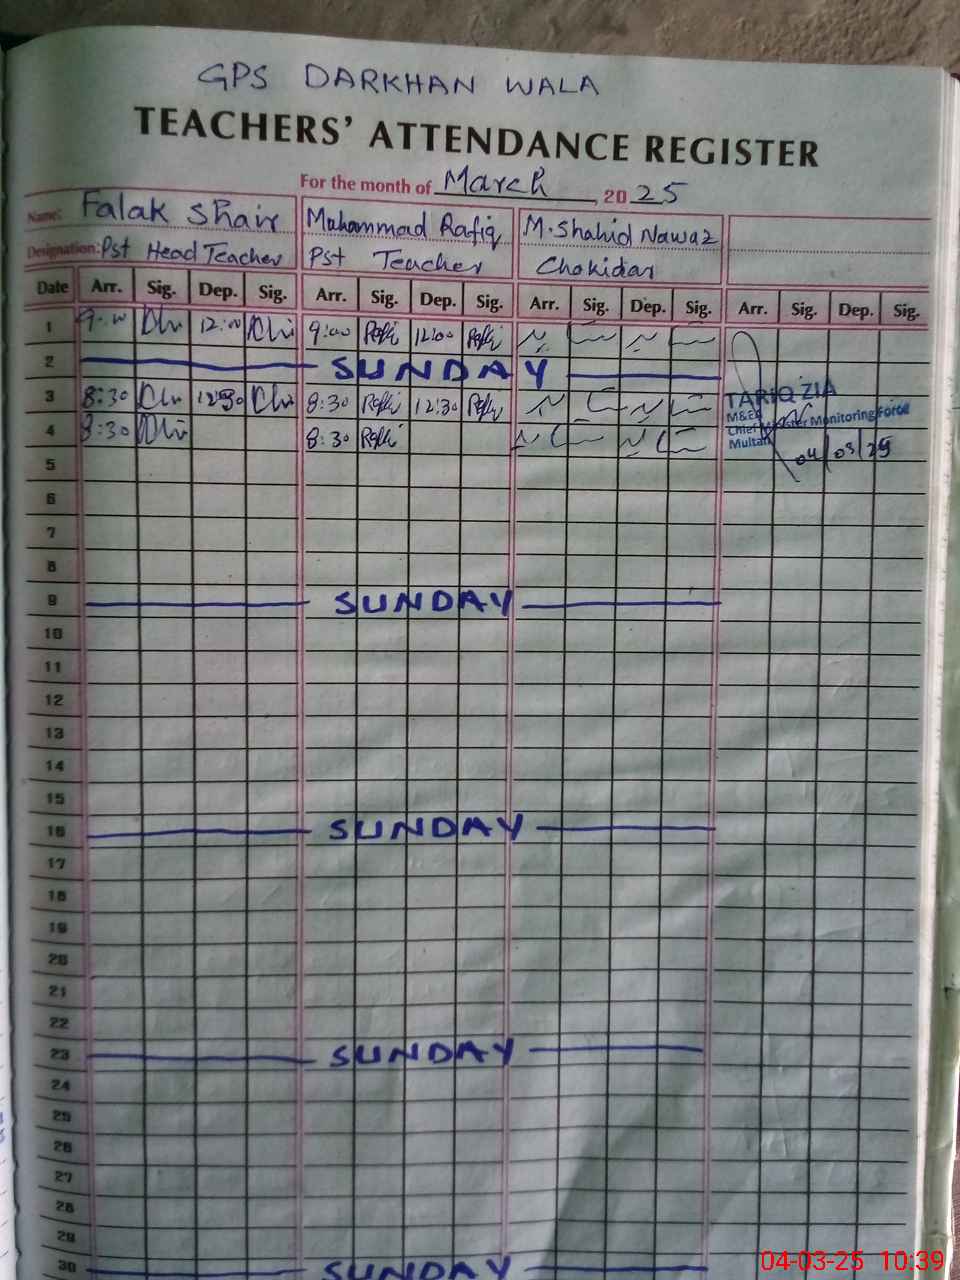 GPS DARKHAN WALA
TEACHERS' ATTENDANCE REGISTER
For the month of March, 2025
Name: Falak Shair Muhammad Rafiq M. Shahid Nawaz
Designation: Pst Head Teacher Pst Teacher Chokidar
Date Arr. Sig. Dep. Sig. Arr. Sig. Dep. Sig. Arr. Sig. Dep. Sig. Arr. Sig. Dep. Sig.
1 9:00 12:00 9:00 Rafiq 12:00 Rafiq
2 SUNDAY
3 8:30 12:30 8:30 Rafiq 12:30 Rafiq
4 8:30 8:30 Rafiq
TARIQ ZIA
M&EA
Chief Minister Monitoring Force
Multan
04/03/25
5
6
7
8
9 SUNDAY
10
11
12
13
14
15
16 SUNDAY
17
18
19
20
21
22
23 SUNDAY
24
25
26
27
28
29
30 SUNDAY
04-03-25 10:39